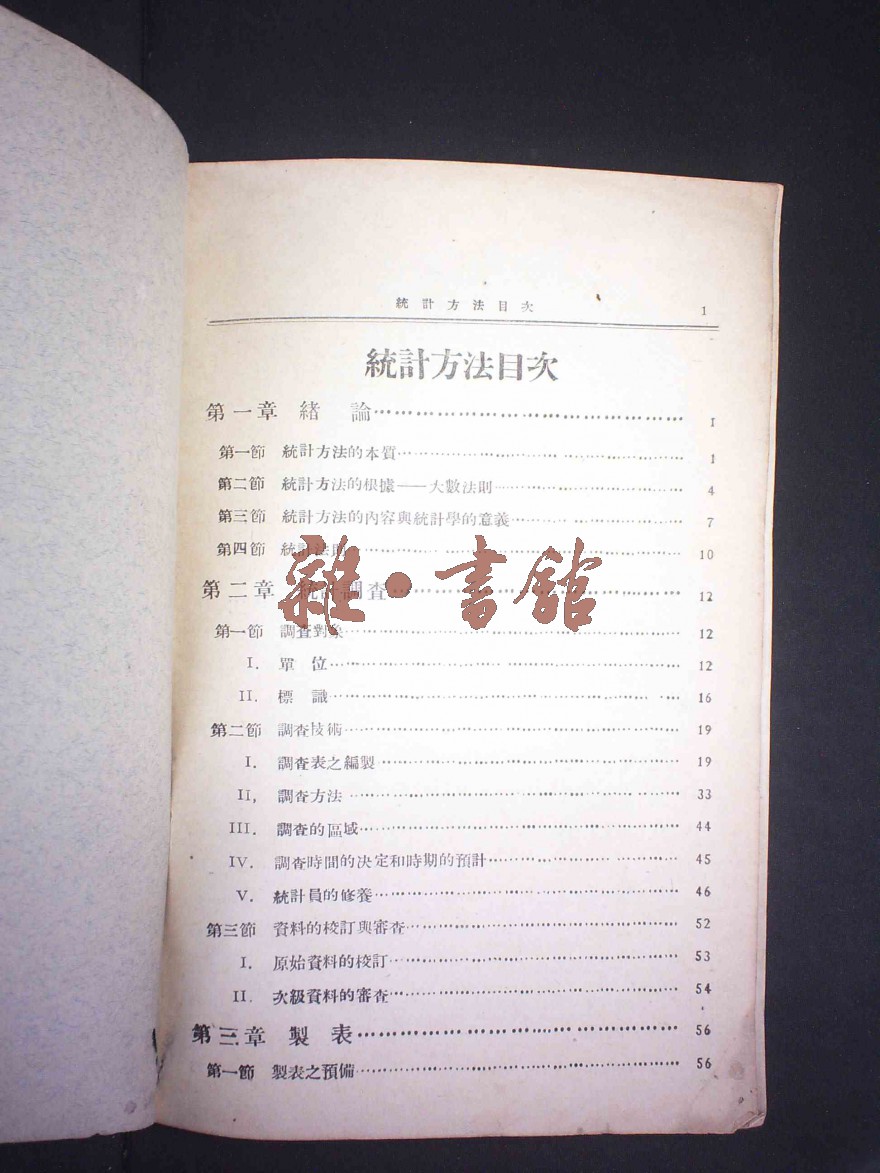 統計方法目次 1
統計方法目次
第一章 緒論……1
第一節 統計方法的本質……1
第二節 統計方法的根據——大數法則……4
第三節 統計方法的內容與統計學的意義……7
第四節 統計法則……10
第二章 統計調查……12
第一節 調查對象……12
I. 單位……12
II. 標識……16
第二節 調查技術……19
I. 調查表之編製……19
II, 調查方法……33
III. 調查的區域……44
IV. 調查時間的決定和時期的預計……45
V. 統計員的修養……46
第三節 資料的校訂與審查……52
I. 原始資料的校訂……53
II. 次級資料的審查……54
第三章 製表……56
第一節 製表之預備……56
雜·書館